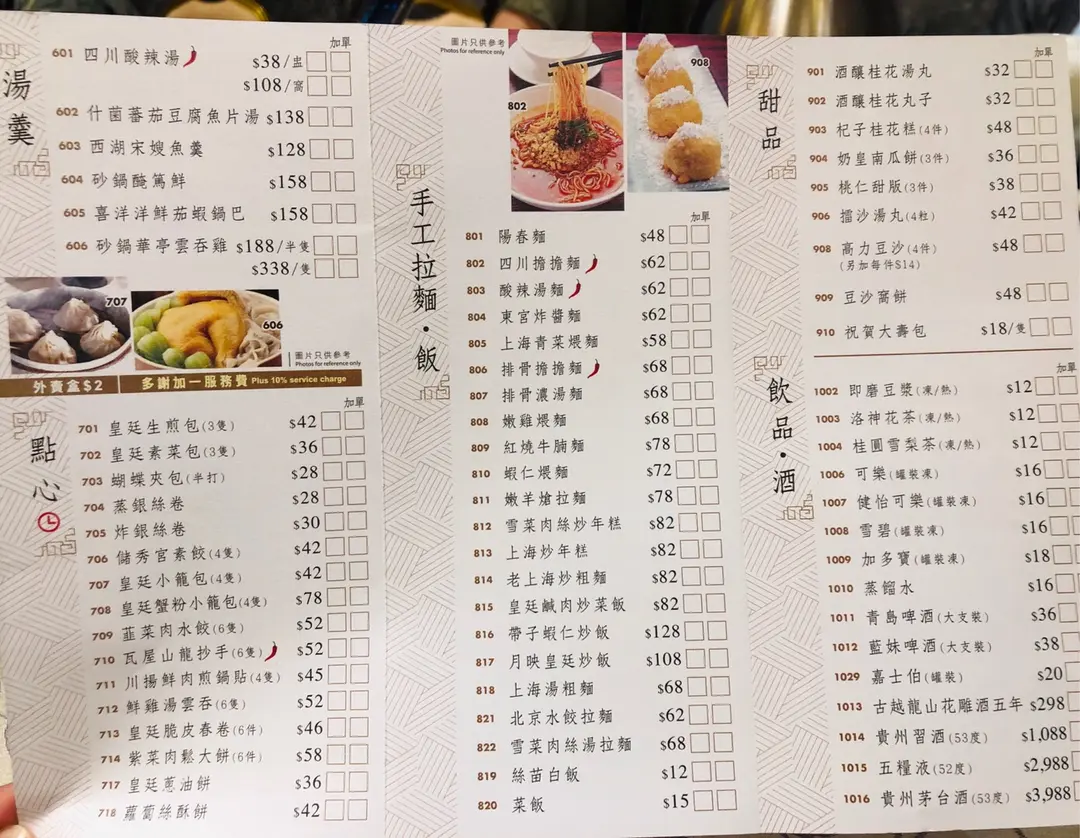 湯羹
加單
601 四川酸辣湯 $38/盅
$108/窩
602 什菌蕃茄豆腐魚片湯 $138
603 西湖宋嫂魚羹 $128
604 砂鍋醃篤鮮 $158
605 喜洋洋鮮茄蝦鍋巴 $158
606 砂鍋華亭雲吞雞 $188/半隻
$338/隻
707
606
圖片只供參考
Photos for reference only
外賣盒$2 多謝加一服務費 Plus 10% service charge
點心
加單
701 皇廷生煎包(3隻) $42
702 皇廷素菜包(3隻) $36
703 蝴蝶夾包(半打) $28
704 蒸銀絲卷 $28
705 炸銀絲卷 $30
706 儲秀宮素餃(4隻) $42
707 皇廷小籠包(4隻) $42
708 皇廷蟹粉小籠包(4隻) $78
709 韮菜肉水餃(6隻) $52
710 瓦屋山龍抄手(6隻) $52
711 川揚鮮肉煎鍋貼(4隻) $45
712 鮮雞湯雲吞(6隻) $52
713 皇廷脆皮春卷(6件) $46
714 紫菜肉鬆大餅(6件) $58
717 皇廷蔥油餅 $36
718 蘿蔔絲酥餅 $42
圖片只供參考
Photos for reference only
802
908
手工拉麵·飯
加單
801 陽春麵 $48
802 四川擔擔麵 $62
803 酸辣湯麵 $62
804 東宮炸醬麵 $62
805 上海青菜煨麵 $58
806 排骨擔擔麵 $68
807 排骨濃湯麵 $68
808 嫩雞煨麵 $68
809 紅燒牛腩麵 $78
810 蝦仁煨麵 $72
811 嫩羊熗拉麵 $78
812 雪菜肉絲炒年糕 $82
813 上海炒年糕 $82
814 老上海炒粗麵 $82
815 皇廷鹹肉炒菜飯 $82
816 帶子蝦仁炒飯 $128
817 月映皇廷炒飯 $108
818 上海湯粗麵 $68
821 北京水餃拉麵 $62
822 雪菜肉絲湯拉麵 $68
819 絲苗白飯 $12
820 菜飯 $15
甜品
加單
901 酒釀桂花湯丸 $32
902 酒釀桂花丸子 $32
903 杞子桂花糕(4件) $48
904 奶皇南瓜餅(3件) $36
905 桃仁甜版(3件) $38
906 擂沙湯丸(4粒) $42
908 高力豆沙(4件) $48
(另加每件$14)
909 豆沙窩餅 $48
910 祝賀大壽包 $18/隻
飲品·酒
加單
1002 即磨豆漿(凍/熱) $12
1003 洛神花茶(凍/熱) $12
1004 桂圓雪梨茶(凍/熱) $12
1006 可樂(罐裝凍) $16
1007 健怡可樂(罐裝凍) $16
1008 雪碧(罐裝凍) $16
1009 加多寶(罐裝凍) $18
1010 蒸餾水 $16
1011 青島啤酒(大支裝) $36
1012 藍妹啤酒(大支裝) $38
1029 嘉士伯(罐裝) $20
1013 古越龍山花雕酒五年 $298
1014 貴州習酒(53度) $1,088
1015 五糧液(52度) $2,988
1016 貴州茅台酒(53度) $3,988